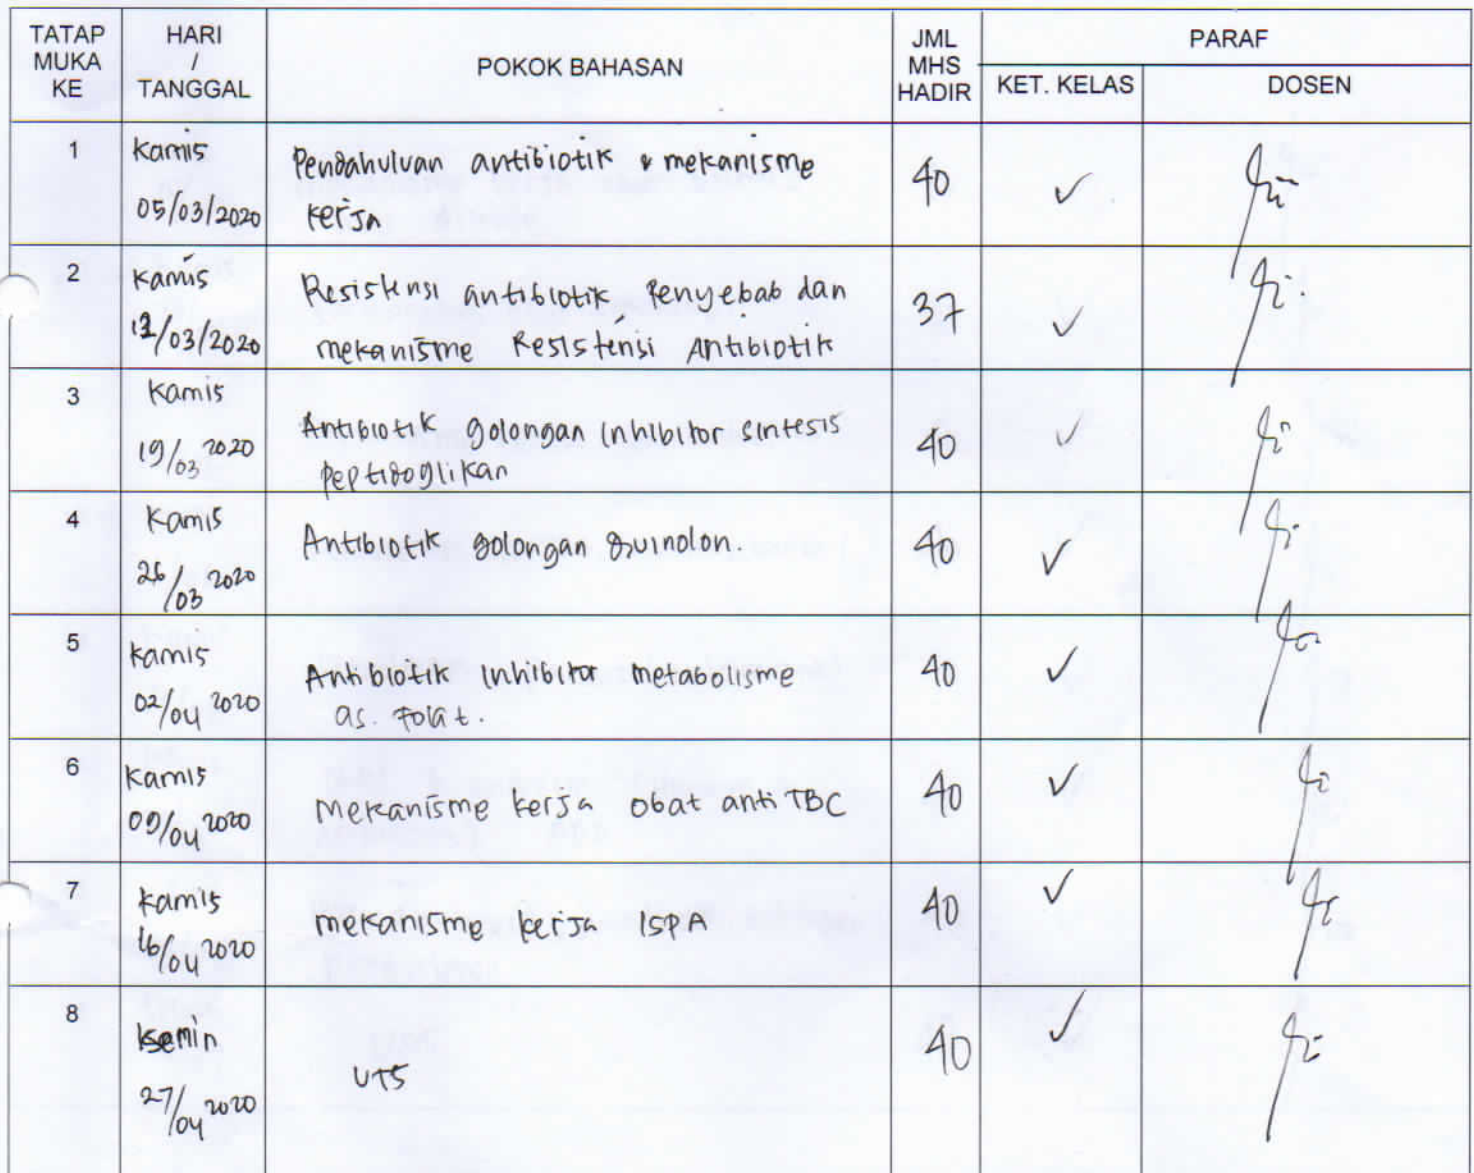 TATAP MUKA KE
HARI / TANGGAL
POKOK BAHASAN
JML MHS HADIR
PARAF
KET. KELAS
DOSEN
1
Kamis
05/03/2020
Pendahuluan antibiotik & mekanisme
kerja
40
✓
2
Kamis
12/03/2020
Resistensi antibiotik Penyebab dan
mekanisme Resistensi Antibiotik
37
✓
3
Kamis
19/03 2020
Antibiotik golongan inhibitor sintesis
peptidoglikan
40
✓
4
Kamis
26/03 2020
Antibiotik golongan quinolon.
40
✓
5
Kamis
02/04 2020
Antibiotik inhibitor metabolisme
as. folat.
40
✓
6
Kamis
09/04 2020
mekanisme kerja obat anti TBC
40
✓
7
Kamis
16/04 2020
mekanisme kerja ISPA
40
✓
8
Senin
27/04 2020
UTS
40
✓